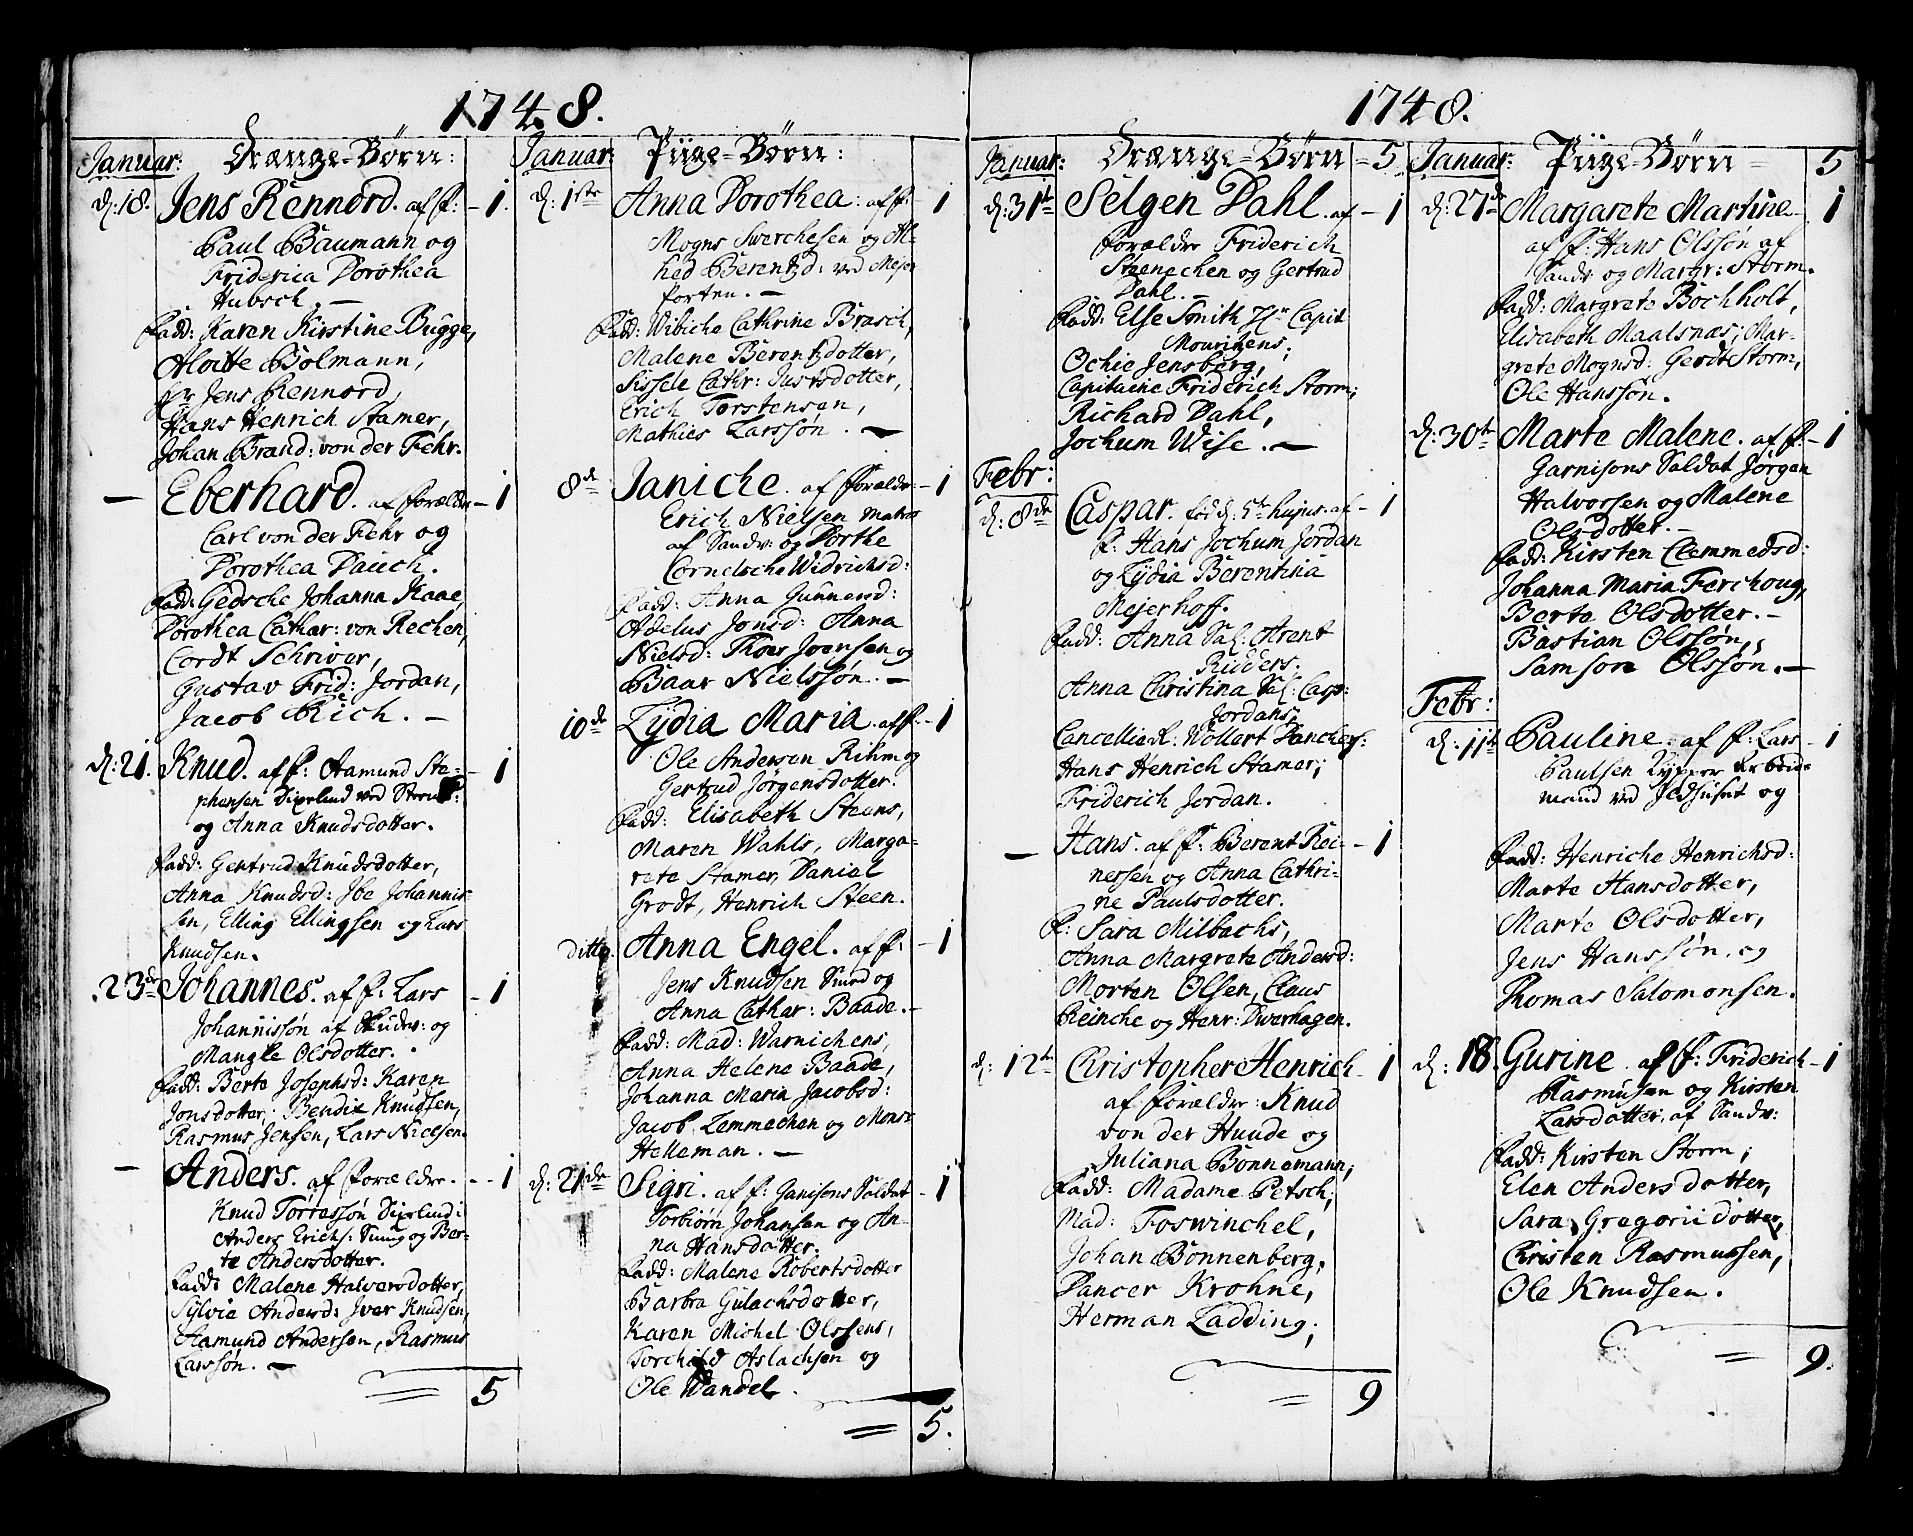 1748.
Januar: Drænge-Börn:
d: 18. Jens Rennord. af F: - 1.
Paul Baumann og
Friderica Dorothea
Hubsch. —
Fadd: Karen Kirstine Bugge,
Aloitte Bolmann,
Hr Jens Rennord,
Hans Henrich Stamer,
Johan Brand: von der Fehr.
— Eberhard. af Forældre - 1
Carl von der Fehr og
Dorothea Pauch.
Fadd: Gedsche Johanna Kaae
Dorothea Cathar: von Rechen,
Cordt Schriver,
Gustav Frid: Jordan,
Jacob Rich. —
d: 21. Knud. af F: Aamund Ste- - 1
phensen
og Anna Knudsdotter.
Fadd: Gertrud Knudsdotter,
Anna Knudsd: Joe Johannis-
sen, Elling Ellingsen og Lars
Knudsen.
23de Johannes. af F: Lars - 1
Johannissøn af Sudv: og
Mangle Olsdotter.
Fadd: Berte Josephsd: Karen
Jonsdotter; Bendix Knudsen,
Rasmus Jensen, Lars Nielsen.
— Anders. af Forældre. - - 1
Knud Torressøn
Anders Erichs: og Ber-
te Andersdotter.
Fadd: Malene Halversdotter,
Sylvie Andersd: Iver Knudsen,
Aamund Andersen, Rasmus
Larssøn. —
5
Januar: Piige-Börn:
d: 1ste Anna Dorothea: af F: 1
Mogns Swerchesen og Al-
hed Berentzd: ved Mejer
Porten. —
Fadd: Wibiche Cathrine Brasch,
Malene Berentzdotter,
Sissele Cathr: Justsdotter,
Erich Torstensen,
Mathies Larssøn. —
8de Janiche. af Forældr: - 1
Erich Nielsen Matros
af Sandv: og Dorthe
Cornelsche Widrichsd:
Fadd: Anna Gunnersd:
Adelus Jonsd: Anna
Nielsd: Thoer Joensen og
Baar Nielssøn. —
10de Lydia Maria. af F: - 1
Ole Andersen Rihm og
Gertrud Jørgensdotter.
Fadd: Elisabeth Steens,
Maren Wahls, Marga-
rete Stamer, Daniel
Grodt, Henrich Steen.
ditto. Anna Engel. af F: - 1
Jens Knudsen Smed og
Anna Cathar: Baade. —
Fadd: Mad: Warnichens,
Anna Helene Baade,
Johanna Maria Jacobsd:
Jacob Lemmechen og Mons
Helleman. —
d: 21de Sigri. af F: Ganisons Soldat - 1
Torbiørn Johansen og An-
na Hansdotter.
Fadd: Malene Robertsdotter
Barbra Gulachsdotter,
Karen Michel Olssens,
Torchild Aslachsen og
Ole Wandel.
5.
1748.
Januar: Drænge-Börn = 5
d: 31te Selgen Dahl. af - 1
Forældre Friderich
Steenechen og Gertrud
Dahl. —
Fadd: Else Smith Hr Capit
Mouritzens,
Ochie Jensberg,
Capitaine Friderich Storm;
Richard Dahl,
Jochum Wise. —
Febr:
d: 8de Caspar. fød d: 5te hujus. af - 1
F: Hans Jochum Jordan
og Lydia Berentina
Mejerhoff.
Fadd: Anna Sal: Arent
Ridders.
Anna Christina Sal: Casp:
Jordans,
Cancellied: Wollert Danchers:
Hans Henrich Stamer;
Friderich Jordan.
— Hans. af F: Berent Rei- - 1
nersen og Anna Cathri-
ne Paulsdotter.
F: Sara Milbachs,
Anna Margrete Andersd:
Morten Olsen, Claus
Reinche og Henr: Dverhagen.
d: 12te Christopher Henrich - 1
af Forældre: Knud
von der Huude og
Juliana Bonnemann,
Fadd: Madame Petsch,
Mad: Foswinchel,
Johan Bonnenberg,
Dancer Krohne,
Herman Ladding,
9
Januar: Piige-Börn = 5
d: 27de Margarete Martine - 1
af F: Hans Olssøn af
Sandv: og Margr: Storm.
Fadd: Margrete Bochholt,
Elisabeth Maalsnæs; Mar-
grete Mognsd: Gerdt Storm,
Ole Hanssøn.
d: 30te Marte Malene. af F: - 1
Garnisons Soldat Jørgen
Halvorsen og Malene
Olsdotter. —
Fadd: Kirsten Clemmedsd:
Johanna Maria Ferchoug,
Berte Olsdotter. —
Bastian Olssøn,
Samson Olssøn. —
Febr:
d: 11te Pauline. af F: Lars - 1
Paulsen Arbeids
mand ved og
Fadd: Henriche Henrichsd:
Marte Hansdotter,
Marte Olsdotter,
Jens Hanssøn, og
Thomas Salomonsen.
d: 18. Gurine. af F: Friderich - 1
Rasmusen og Kirsten
Larsdotter, af Sandv:
Fadd: Kirsten Storm;
Elen Andersdotter,
Sara Gregorii dotter,
Christen Rasmussen,
Ole Knudsen.
9.